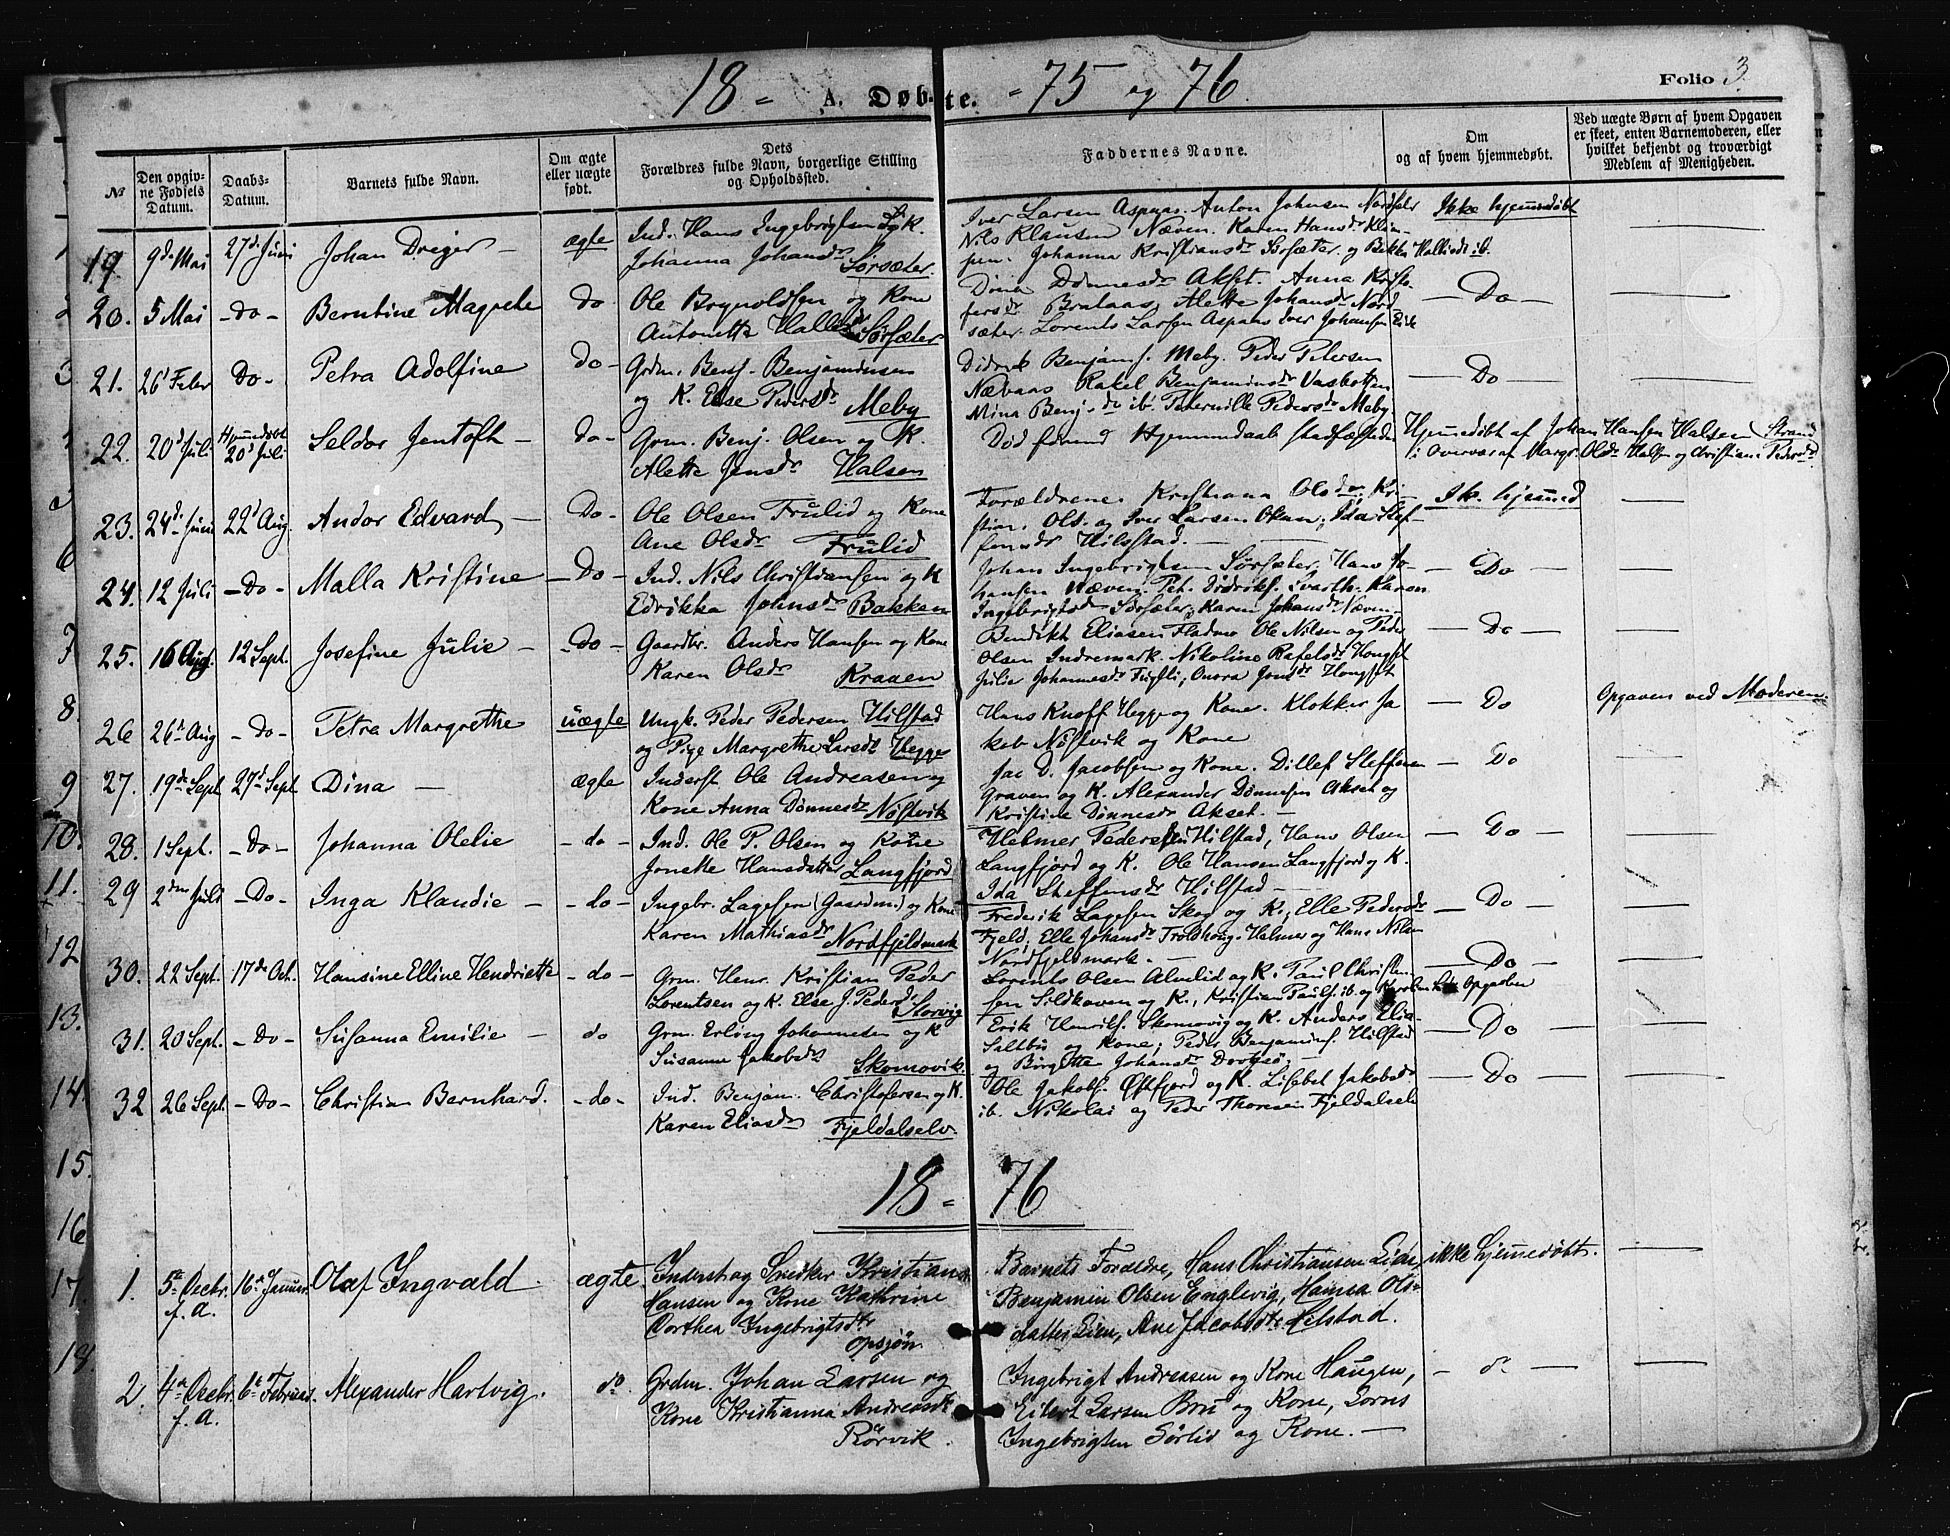 18 = A. Døbte. = 75 og 76. Folio 3.
№
Den opgivne Fødsels Datum.
Daabs-Datum.
Barnets fulde Navn.
Om ægte eller uægte født.
Dets Forældres fulde Navn, borgerlige Stilling og Opholdssted.
Faddernes Navne.
Om og af hvem hjemmedøbt.
Ved uægte Børn af hvem Opgaven er skeet, enten Barnemoderen, eller hvilket bekjendt og troværdigt Medlem af Menigheden.
19. 9de Mai 27de Juni Johan Dreyer — ægte Ind. Hans Ingebrigtsen og K.
Johanna Johansdr Sørsæter.
Iver Larsen Aspaas. Anton Johnsen Nordsæter Ikke hjemmedøbt
Nils Klausen Næven. Karen Hansdr
Johanna Kristiansdr Sørsæter. og Bekka
20. 5 Mai -Do- Berntine Magrethe Do Ole Brynoldsen og Kone
Antonetta Sørsæter
Dina Dønnesdr Akset. Anna Kristo-
fersdr Brataas, Alette Johansdr Nord
sæter. Lorents Larsen Aspaas Iver Johansen
— Do —
21. 26 Febr Do- Petra Adolfine Do- Grdm. Benj. Benjaminsen
og K. Else Pedersdr Meby
Didrik Benjams. Meby. Peder Petersen
Nævaas Rakel Benjaminsdr Vasbotten
Mina Benj.-dr ib. Peternille Pedersdr Meby
— Do —
22. 20d Juli Hjemmedøbt 20d Juli Seldor Jentoft — Do- Grm. Benj. Olsen og K
Alette Jensdr Halsen
Død forend Hjemmedaab stadfæstedes Hjemmedøbt af Johan Hansen Halsen Strand
i Overvær af Margr. Olsdr Halsen og Christian Pedersdr
23. 24de Juni 22d Aug. Andor Edvard — Do- Ole Olsen Frulid og Kone
Ane Olsdr Frulid
Forældrene. Kristiana Olsdr. Kri-
stian. Ols. og Iver Larsen. Okan, Ida Stef-
fensdr Hilstad. —
Ik. hjemmed
24. 12 Juli -Do- Malla Kristine — Do - Ind. Nils Christiansen og K
Edrikka Johnsdr Bakken
Johan Ingebrigtsen Sørsæter, Hans Jo-
hansen Næven. Pet. Didriks. Svarth. Karen
Ingebrigtsdr Sørsæter, Karen Johansdr Næven.
— Do —
25. 16 Aug. 12 Sept. Josefine Julie — -Do- Gaardbr. Anders Hansen og Kone
Karen Olsdr Kraaen
Bendikt Eliasen Fladmo Ole Nilsen og Peder
Olsen Indremark. Nikoline Rafelsdr Hongset
Julie Johannesdr Onora Jonsdr Hongset
— Do —
26 26de Aug -Do- Petra Margrethe uægte Ungk. Peder Pedersen Hilstad
og Pige Margrethe Larsdr Hegge
Hans Knoff Hegge og Kone. Klokker Ja
kob Nøstvik og Kone
— Do Opgaven ved Moderen.
27. 19de Sept 27d Sept Dina — ægte Inderst Ole Andreasen og
Kone Anna Dønnesdr Nøstvik
Jac D. Jacobsen og Kone. Dillef Steffensen
Graven og K. Alexander Dønnesen Akset og
Kristine Dønnesdr Akset. —
— Do
28. 1 Sept. -Do- Johanna Olelie - do - Ind. Ole P. Olsen og Kone
Jonette Hansdatter Langfjord
Helmer Pedersen Hilstad, Hans Olsen
Langfjord og K. Ole Hansen Langfjord og K.
Ida Steffensdr Hilstad —
— Do —
29 2den Juli -Do- Inga Klaudie - - do - Ingebr. Lagesen (Gaardmd) og Kone
Karen Mathiasdr Nordfjeldmark
Frederik Lagesen Skog og K., Elle Pedersdr
Fjeld, Elle Johansdr Troldhoug. Halmer og Hans Nilsen
Nordfjeldmark. —
— Do —
30. 22 Sept. 17de Oct. Hansine Elline Hendriette - do - Grm. Henr. Kristian Peder
Lorentsen og K. Else J. Pedersdr Storvig
Lorents Olsen Almlid og K. Paul Christen-
sen Sildhaven og K., Kristian Pauls. ib. og Karoline
— Do —
31. 20 Sept. -Do- Susanna Emilie — do Grm. Erling Johannesen og K
Susanne Jakobsdr Skomovik
Erik Henriks. Skomovig og K. Anders Elia-
Saltbu og Kone; Peder Benjamins. Hilstad
og Birgitte Johansdr —
— Do —
32 26 Sept. -Do- Christian Bernhard. - do - Ind. Benjam. Christofersen og K.
Karen Eliasdr Fjeldalselv.
Ole Jakobs. Oftfjord og K. Lisbet Jakobsdr
ib. Nikolai og Peder Thoresen Fjeldalselv
— Do —
18 = 76
1. 5te Decbr. f. A. 16de Januar. Olaf Ingvald. ægte Inderst og Snedker Kristian
Hansen og Kone Kathrine
Dorthea Ingebrigtsdtr
Opsjøn
Barnets Forældre, Hans Christiansen Lien, ikke hjemmedøbt.
Benjamin Olsen Englevig, Hansea Ols-
datter Lien, Ane Jacobsdtr Hilstad.
2. 4de Decbr. f. A. 6te Februar. Alexander Hartvig. do Grdm. Johan Larsen og
Kone Kristianna Andreasdtr
Rörvik.
Ingebrigt Andreasen og Kone Haugen,
Eilert Larsen Bru og Kone, Lorns
Ingebrigtsen Sörlid og Kone. —
— do —
1
2
3
5
6
7
8.
9
10.
11.
12
13.
14.
15.
16
17
18